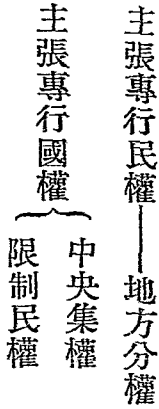 主張專行民權——地方分權
主張專行國權
中央集權
限制民權